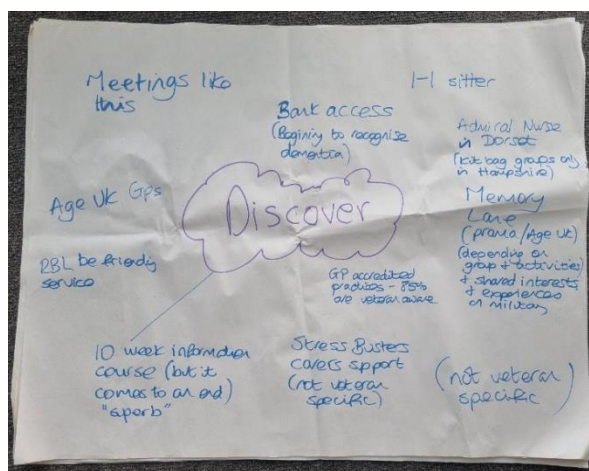 Meetings like
this
1-1 sitter
Bank access
(Begining to recognise
dementia)
Admiral Nurse
in Dorset
(kit bag groups only
in Hampshire)
Age UK Gps
Discover
Memory
Lane
(prama/Age UK)
(depending on
group & activities)
& shared interests
& experiences
on military
RBL be friendig
service
GP accredited
practices - 85%
are veteran aware
10 week information
course (but it
comes to an end)
"superb"
Stress Busters
carers support
(not veteran
specific)
(not veteran
specific)